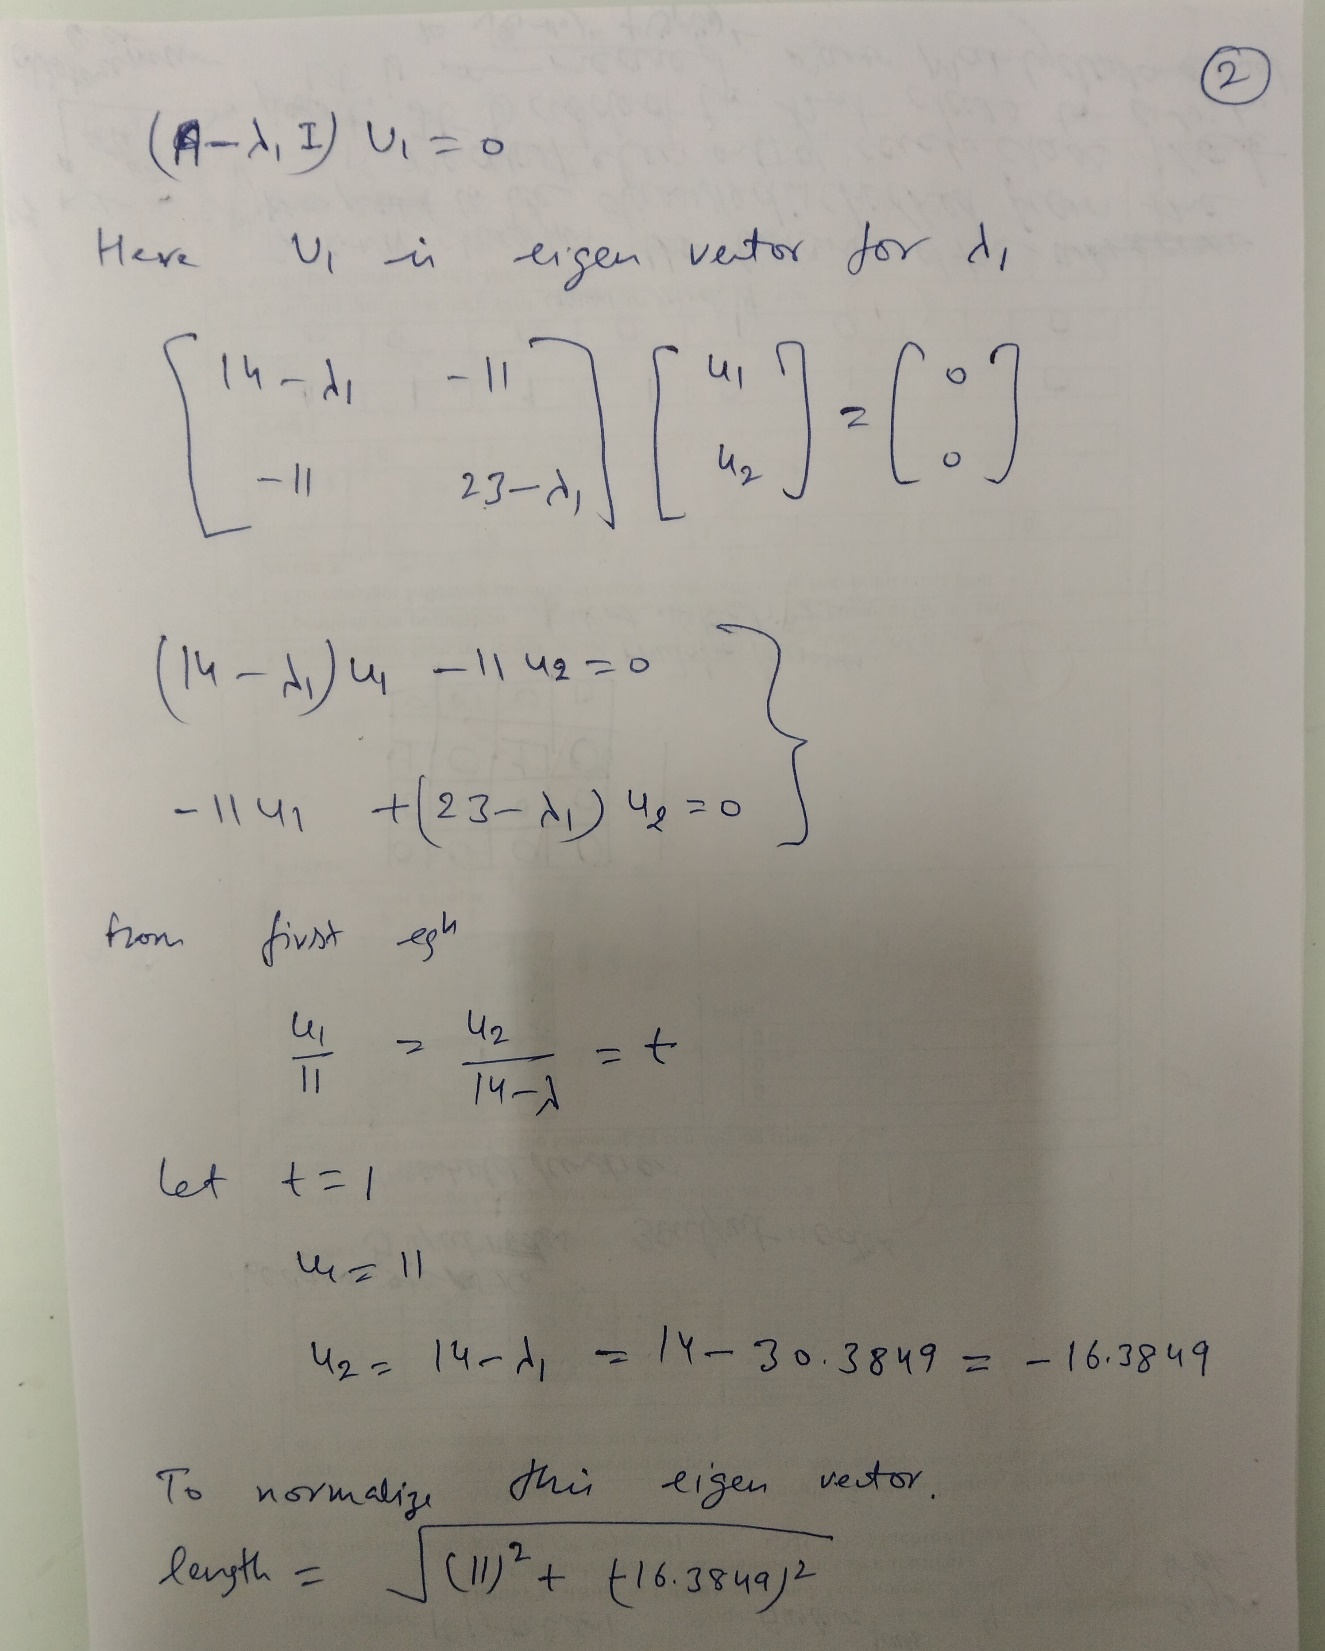 2
(A-λ₁I) U₁ = 0
Here U₁ is eigen vector for λ₁
[14-λ₁ -11] [u₁] = [0]
[-11 23-λ₁] [u₂] [0]
(14-λ₁)u₁ -11u₂=0
-11u₁ +(23-λ₁)u₂=0
from first eqn
u₁/11 = u₂/14-λ = t
Let t=1
u₁=11
u₂ = 14-λ₁ = 14-30.3849 = -16.3849
To normalize this eigen vector.
length = √(11)² + (-16.3849)²